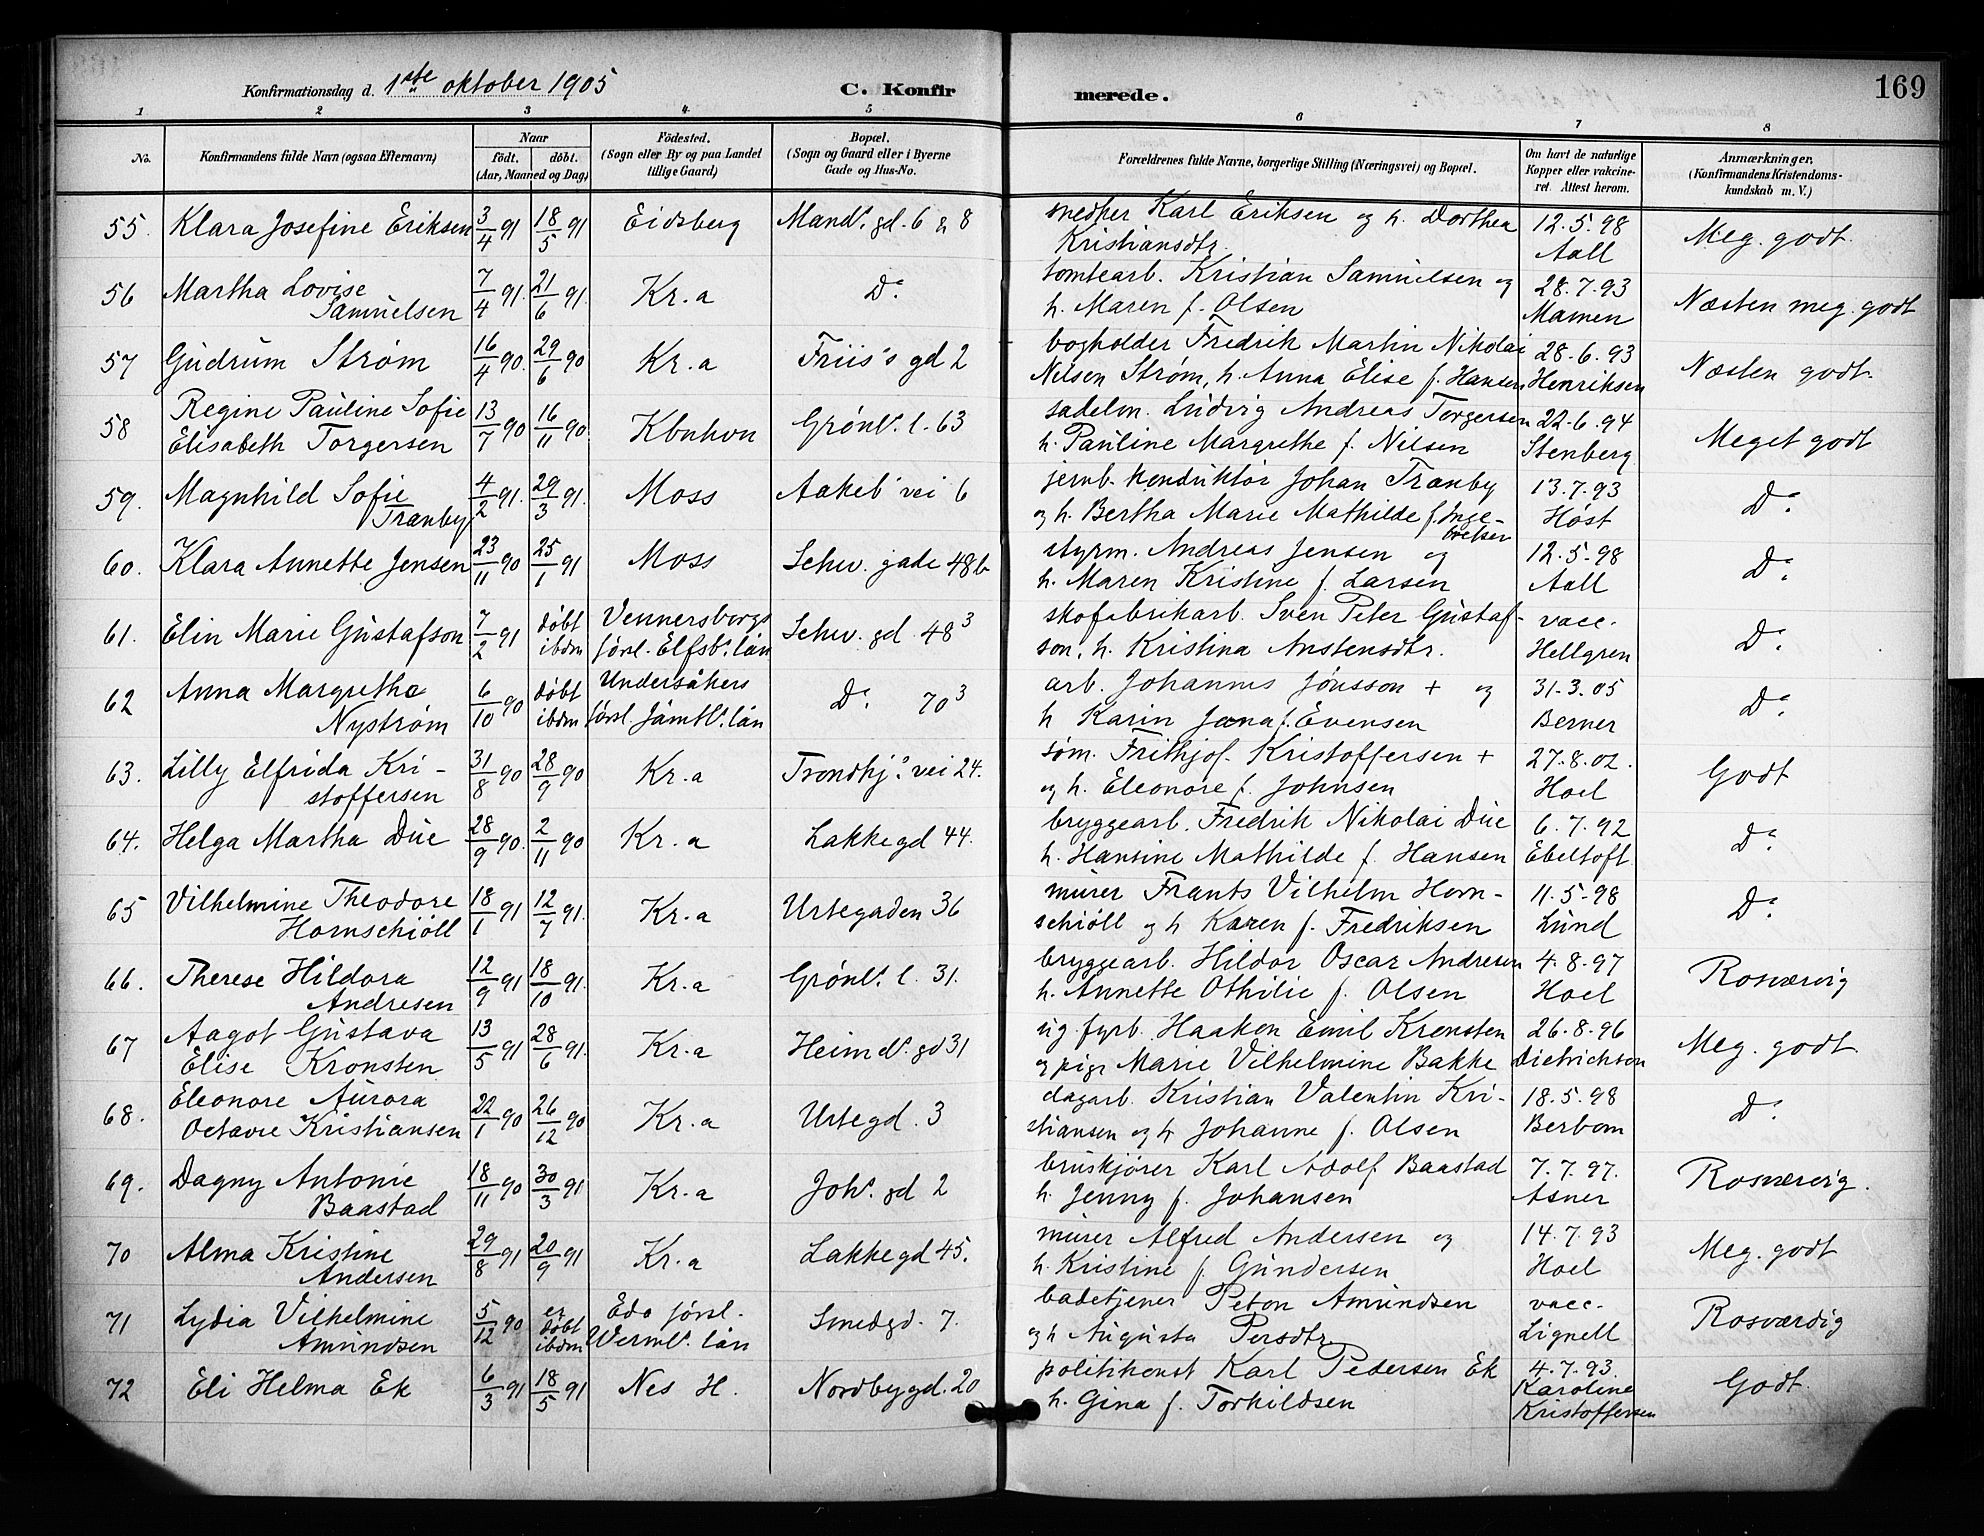 169
Konfirmationsdag d. 1ste oktober 1905 C. Konfirmerede.
1 2 3 4 5 6 7 8
No. Konfirmandens fulde Navn (ogsaa Efternavn) Naar født. døbt. (Aar, Maaned og Dag) Fødested. (Sogn eller By og paa Landet tillige Gaard) Bopæl. (Sogn og Gaard eller i Byerne Gade og Hus-No. Forældrenes fulde Navne, borgerlige Stilling (Næringsvei) og Bopæl. Om havt de naturlige Kopper eller vakcineret. Attest herom. Anmærkninger. (Konfirmandens Kristendomskundskab m. V.)
55. Klara Josefine Eriksen 3/4 91 18/5 91 Eidsberg Mands. gd. 6 & 8 snedker Karl Eriksen og h. Dorthea Kristiansdtr. 12.5.98 Aall Meg. godt.
56 Martha Lovise Samuelsen 7/4 91. 21/6 91. Kr.a Do. tomtearb. Kristian Samuelsen og h. Maren f. Olsen 28.7.93 Mamen Næsten meg. godt
57 Gudrum Strøm 16/4 90. 29/6 90 Kr.a Friis's gd 2 bogholder Fredrik Martin Nikolai Nilsen Strøm, h. Anna Elise f. Hansen 28.6.93 Henriksen Næsten godt.
58 Regine Pauline Sofie Elisabeth Torgersen 13/7 90 16/11 90. Kbnhvn Grønls. l. 63 sadelm. Ludvig Andreas Torgersen h. Pauline Margrethe f. Nilsen 22.6.94 Stenberg Meget godt
59. Magnhild Sofie Tranby 4/2 91. 29/3 91. Moss Aakeb. vei 6 jernb. konduktør Johan Tranby og h. Bertha Marie Mathilde f. Ingebretsen 13.7.93 Høst Do.
60. Klara Annette Jensen 23/11 90 25/1 91 Moss Schw. gade 48b styrm. Andreas Jensen og h. Maren Kristine f. Larsen 12.5.98 Aall Do.
61. Elin Marie Gustafson 7/2 91 døbt ibdm Vennersborgs førsl. Elfsbs. län Schw. gd. 48 3 skofabrikarb. Sven Peter Gustafson, h. Kristina Anstensdtr. vacc. Hellgren Do.
62 Anna Margrethe Nystrøm 6/10 90 døbt ibdm Undersåkers førsl. Jämtls. län Do. 70 3 arb. Johannes Jönsson + og h Karin Jona f. Evensen 31.3.05 Berner Do.
63. Lilly Elfrida Kristoffersen 31/8 90 28/9 90 Kr.a Trondhj.s vei 24. søm. Frithjof Kristoffersen + og h. Eleonore f. Johnsen 27.8.02. Hoel Godt
64. Helga Martha Due 28/9 90. 2/11 90 Kr.a Lakkegd 44. bryggearb. Fredrik Nikolai Due h. Hansine Mathilde f. Hansen 6.7.92 Ebeltoft Do.
65 Vilhelmine Theodore Hornschiöll 18/1 91 12/7 91. Kr.a Urtegaden 36 murer Frants Vilhelm Hornschiöll og h Karen f. Fredriksen 11.5.98 Lund Do.
66. Therese Hildora Andresen 12/9 91 18/10 91. Kr.a Grønls. l. 31. bryggearb. Hildor Oscar Andresen h. Annette Othilie f. Olsen 4.8.97 Hoel Rosværdig
67 Aagot Gustava Elise Kronsten 13/5 91 28/6 91. Kr.a Heimds. gd 31 ug. fyrb. Haakon Emil Kronsten og pige Marie Vilhelmine Bakke 26.8.96 Dietrichson Meg. godt.
68. Eleonore Aurora Octavie Kristiansen 22/1 90 26/12 90 Kr.a Urtegd. 3 dagarb. Kristian Valentin Kristiansen og h Johanne f. Olsen 18.5.98 Berbom Do.
69. Dagny Antonie Baastad 18/11 90 30/3 91 Kr.a Johs. gd 2 bruskjører Karl Adolf Baastad h. Jenny f. Johansen 7.7.97. Asner Rosværdig.
70 Alma Kristine Andersen 29/8 91 20/9 91 Kr.a Lakkegd 45. murer Alfred Andersen og h. Kristine f. Gundersen 14.7.93 Hoel Meg. godt
71 Lydia Vilhelmine Amundsen 5/12 90 er døbt ibdm Edo førsl. Wermls. län Smedgd. 7. badetjener Peton Amundsen og h Augusta Persdtr. vacc. Lignell Rosværdig
72 Eli Helma Ek 6/3 91 18/5 91 Nes H. Nordbygd. 20 politikonst Karl Pedersen Ek h. Gina f. Torkildsen 4.7.93. Karoline Kristoffersen Godt.